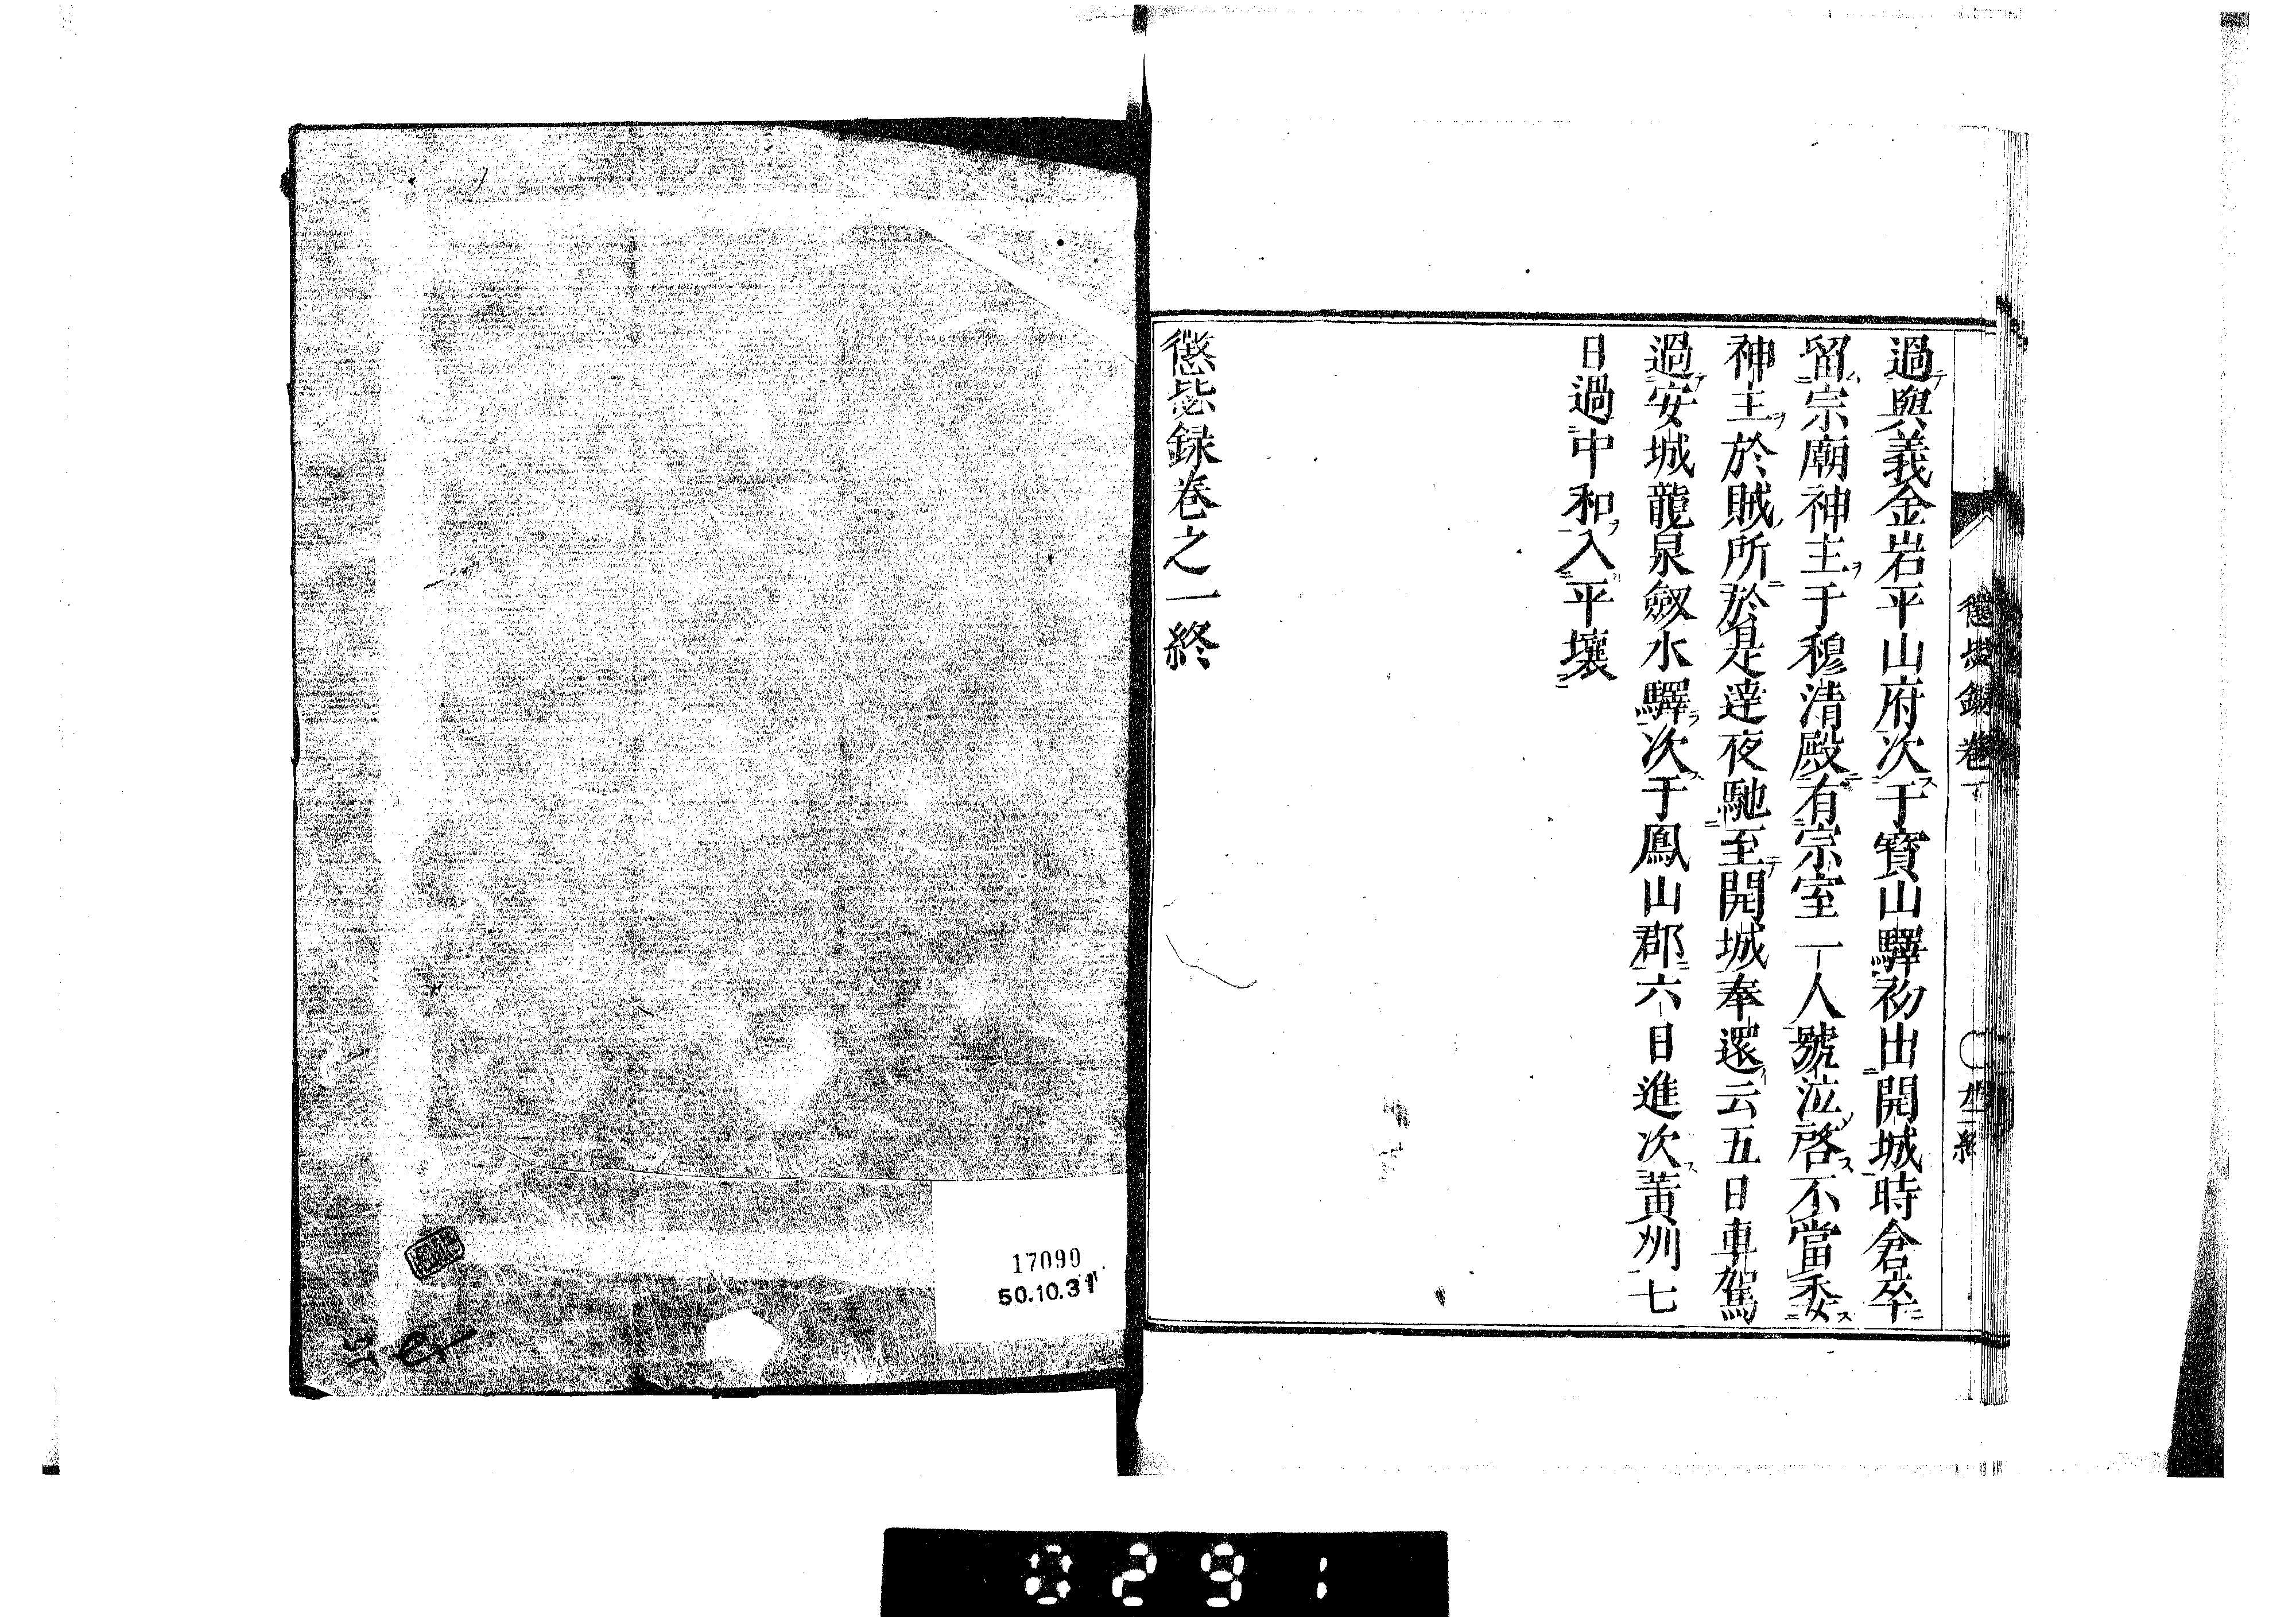 過興義金岩平山府次于寶山驛初出開城時倉卒
留宗廟神主于穆清殿有宗室一人號泣啓不當委
神主於賊所於是達夜馳至開城奉還云五日車駕
過安城龍泉劔水驛次于鳳山郡六日進次黃州七
日過中和入平壤
懲毖録巻之一終
17090
50.10.31
0291